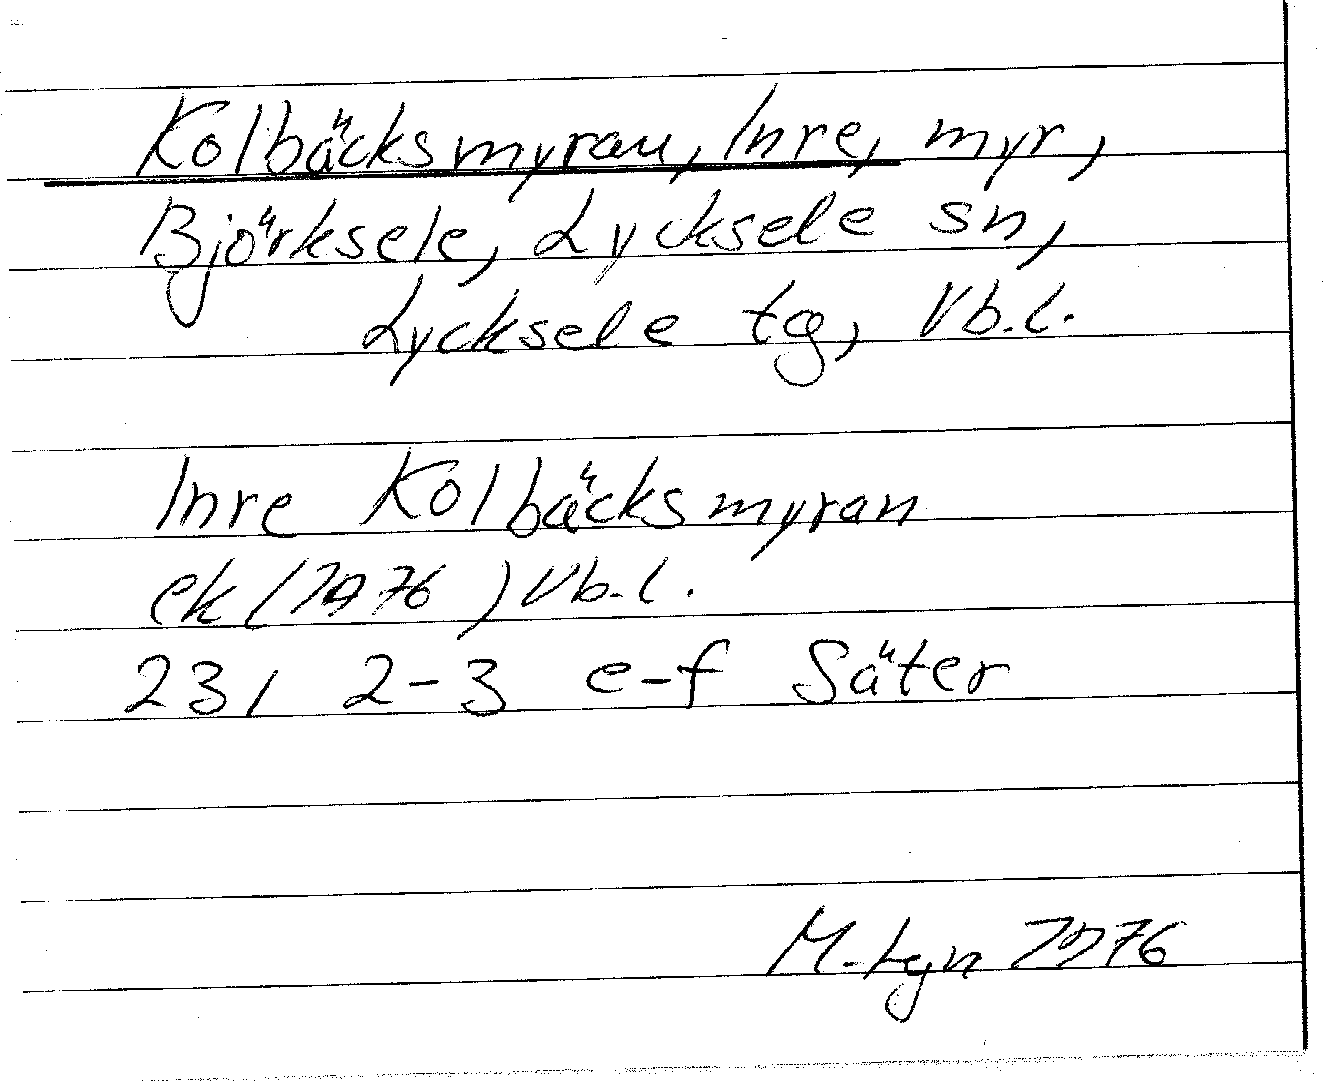 Kolbäcksmyran, Inre, myr,
Björksele, Lycksele sn,
Lycksele tg, Vb.l.
Inre Kolbäcksmyran
ek (1976) Vb.l.
23I 2-3 e-f Säter
1976